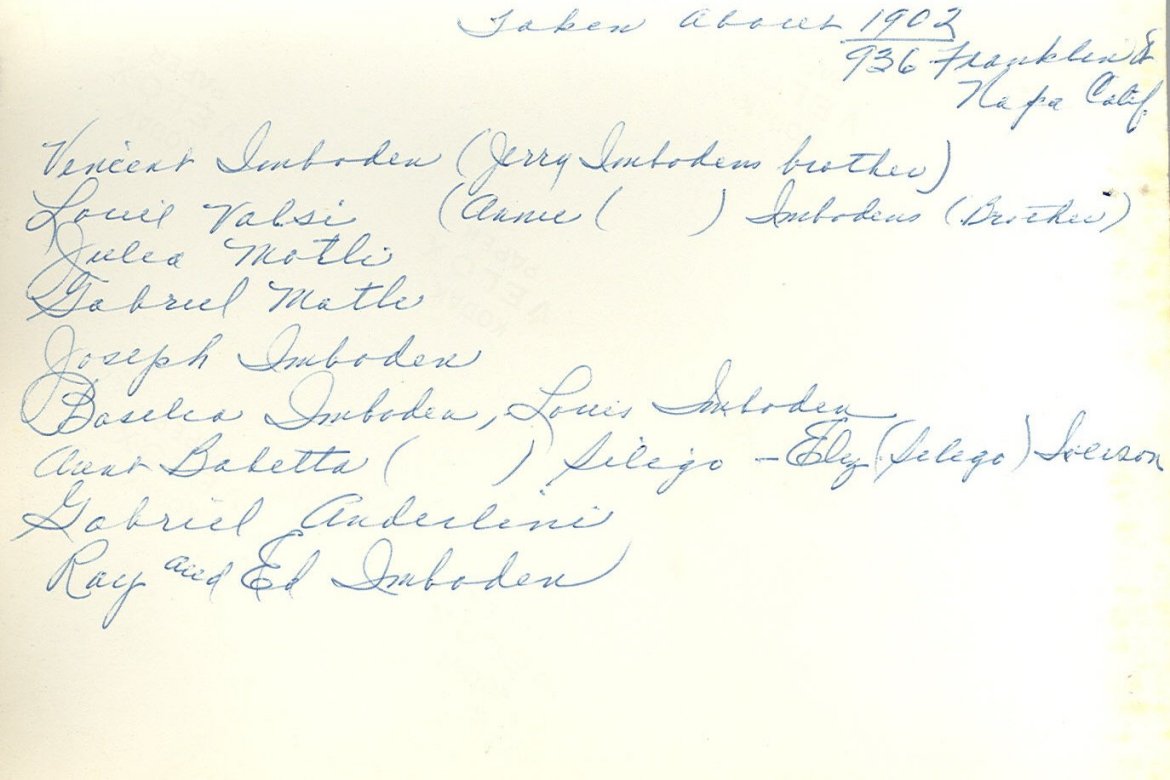 Taken About 1902
936 Franklin St
Napa Calif
Vincent Imboden (Jerry Imbodens brother)
Louie Valsi (Annie ( ) Imbodens (Brother)
Julia Motli
Gabriel Motli
Joseph Imboden
Baselia Imboden, Louis Imboden
Aunt Babetta ( ) Silego - Eliz (Silego)
Gabriel Anderlini
Ray and Ed Imboden